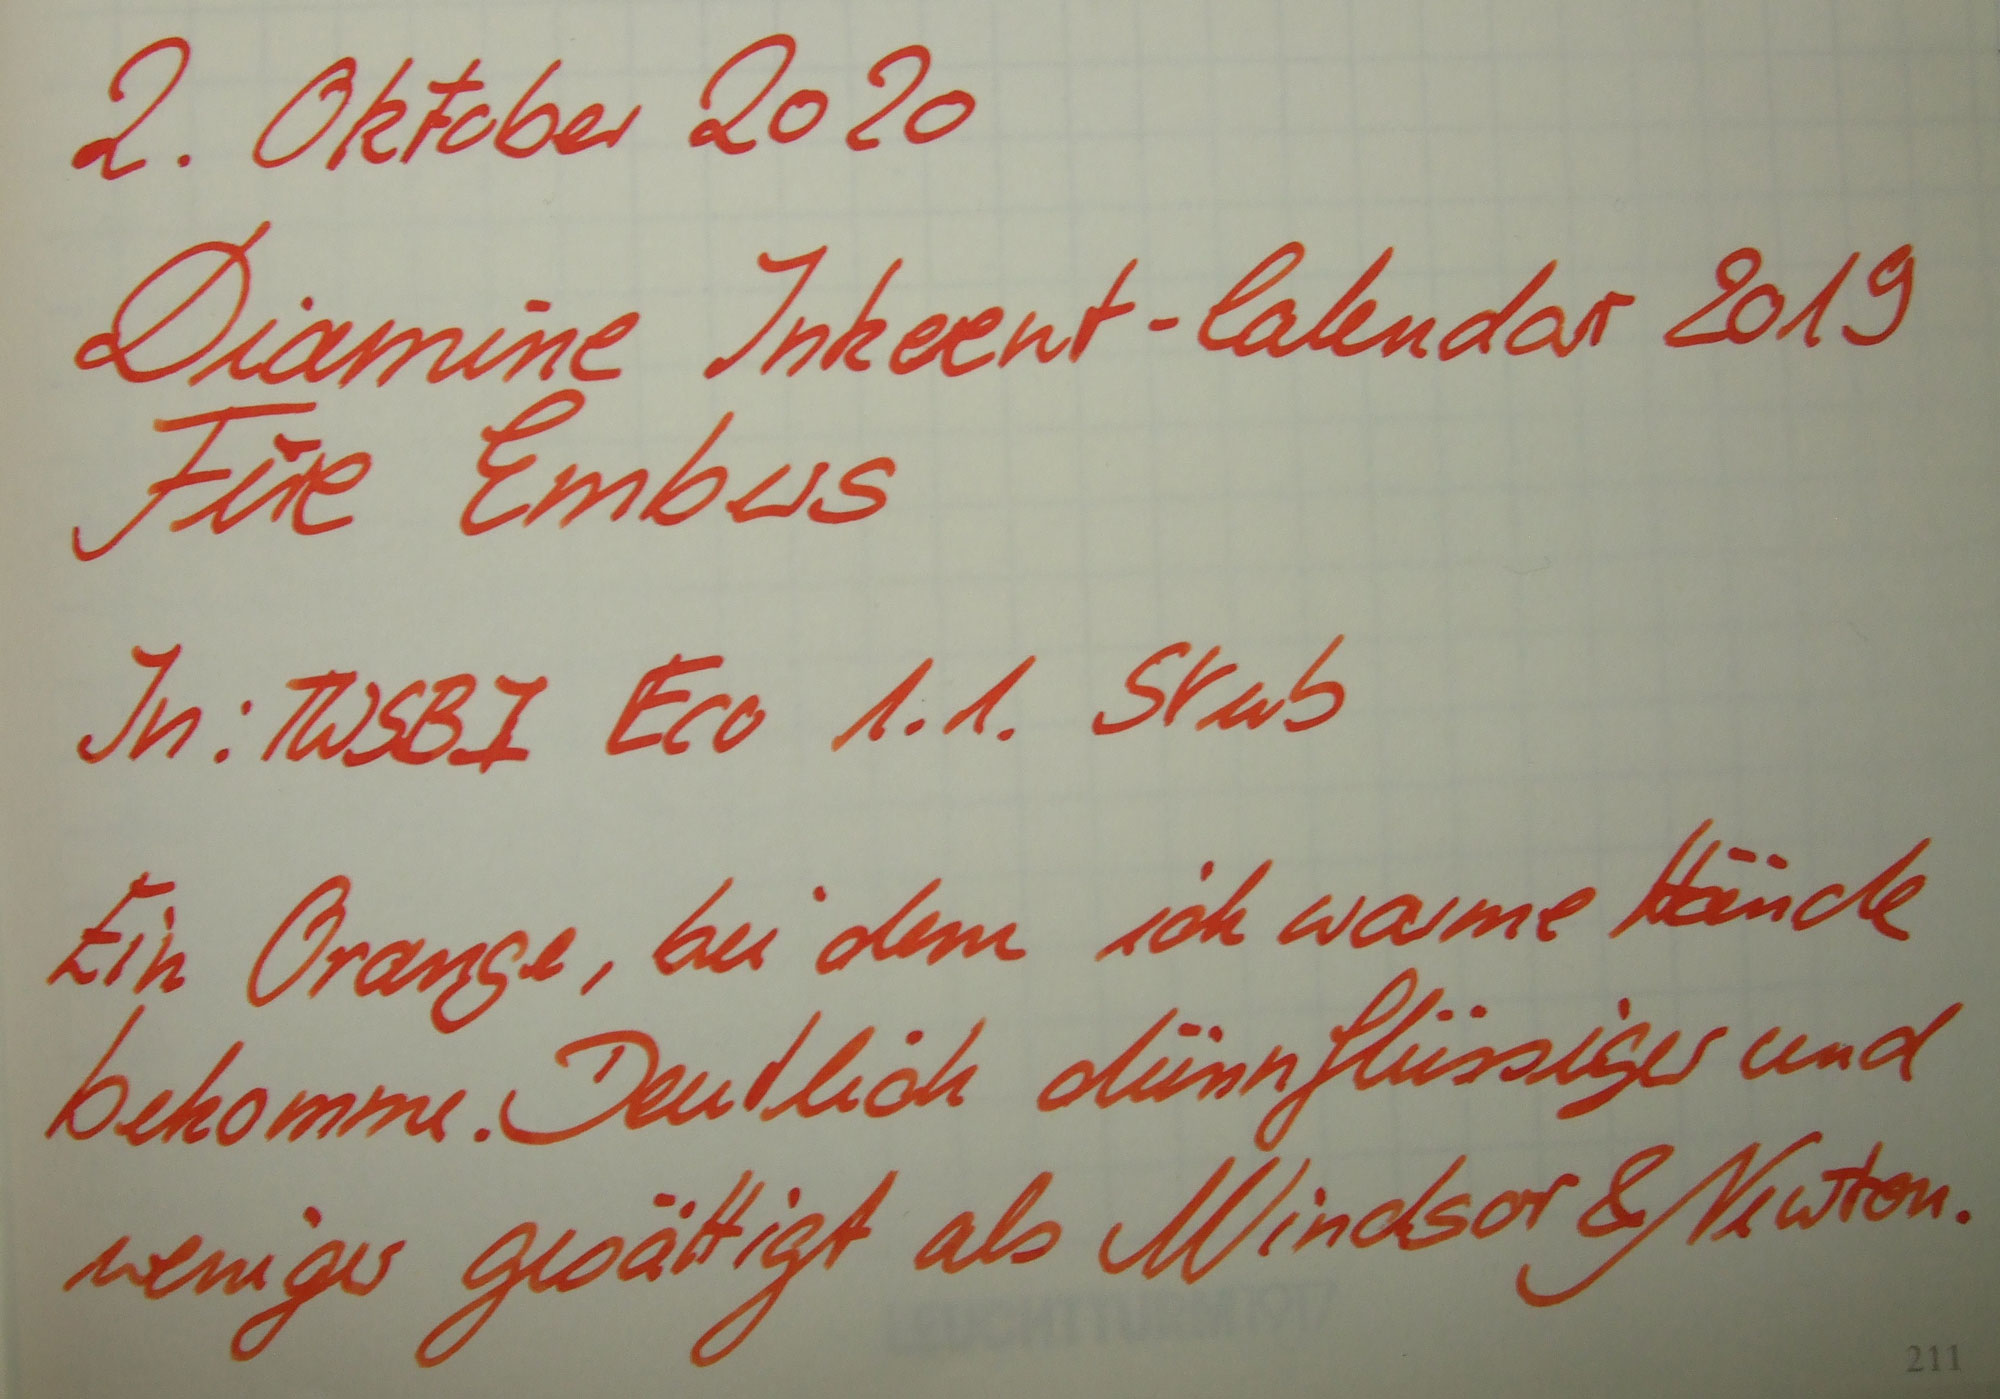 2. Oktober 2020
Diamine Inkvent-Calendar 2019
Fire Embers
In: TWSBI Eco 1.1. Stub
Ein Orange, bei dem ich warme Hände
bekomme. Deutlich dünnflüssiger und
weniger gesättigt als Windsor & Newton.
LEUCHTTURM1917
211